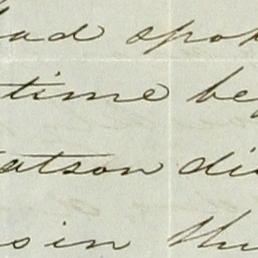 had spok
time be
atson di
s in thi